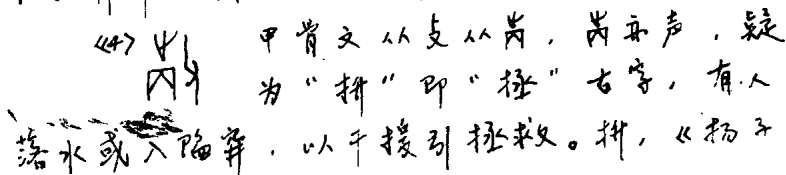 《4》 甲骨文从攴从,亦声,疑
为“抍”即“拯”古字,有人
落水或入陷穽,以手援引拯救。抍,《扬子